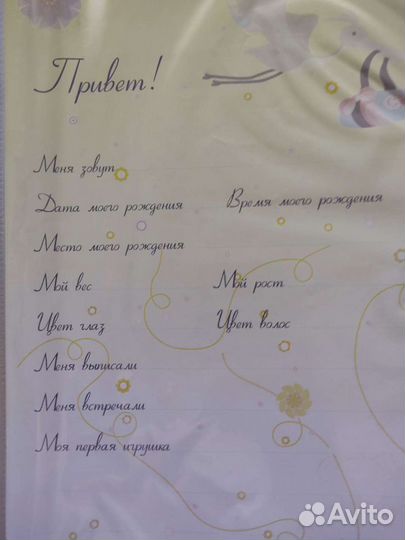 Привет!
Меня зовут
Дата моего рождения Время моего рождения
Место моего рождения
Мой вес Мой рост
Цвет глаз Цвет волос
Меня выписали
Меня встречали
Моя первая игрушка
Avito